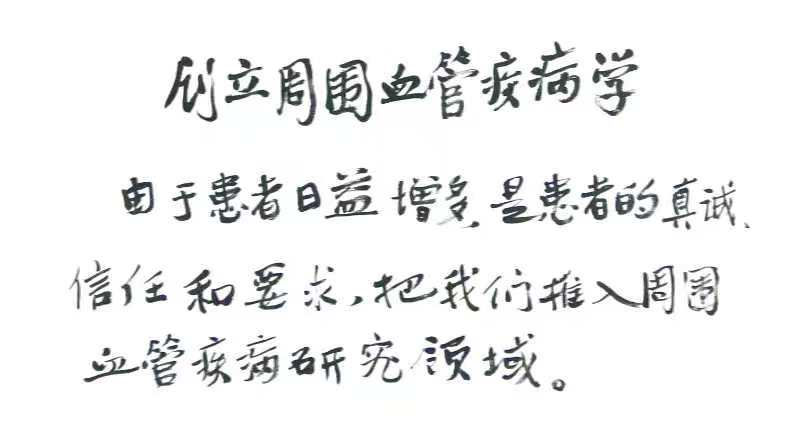 创立周围血管疾病学
由于患者日益增多,是患者的真诚、
信任和要求,把我们推入周围
血管疾病研究领域。